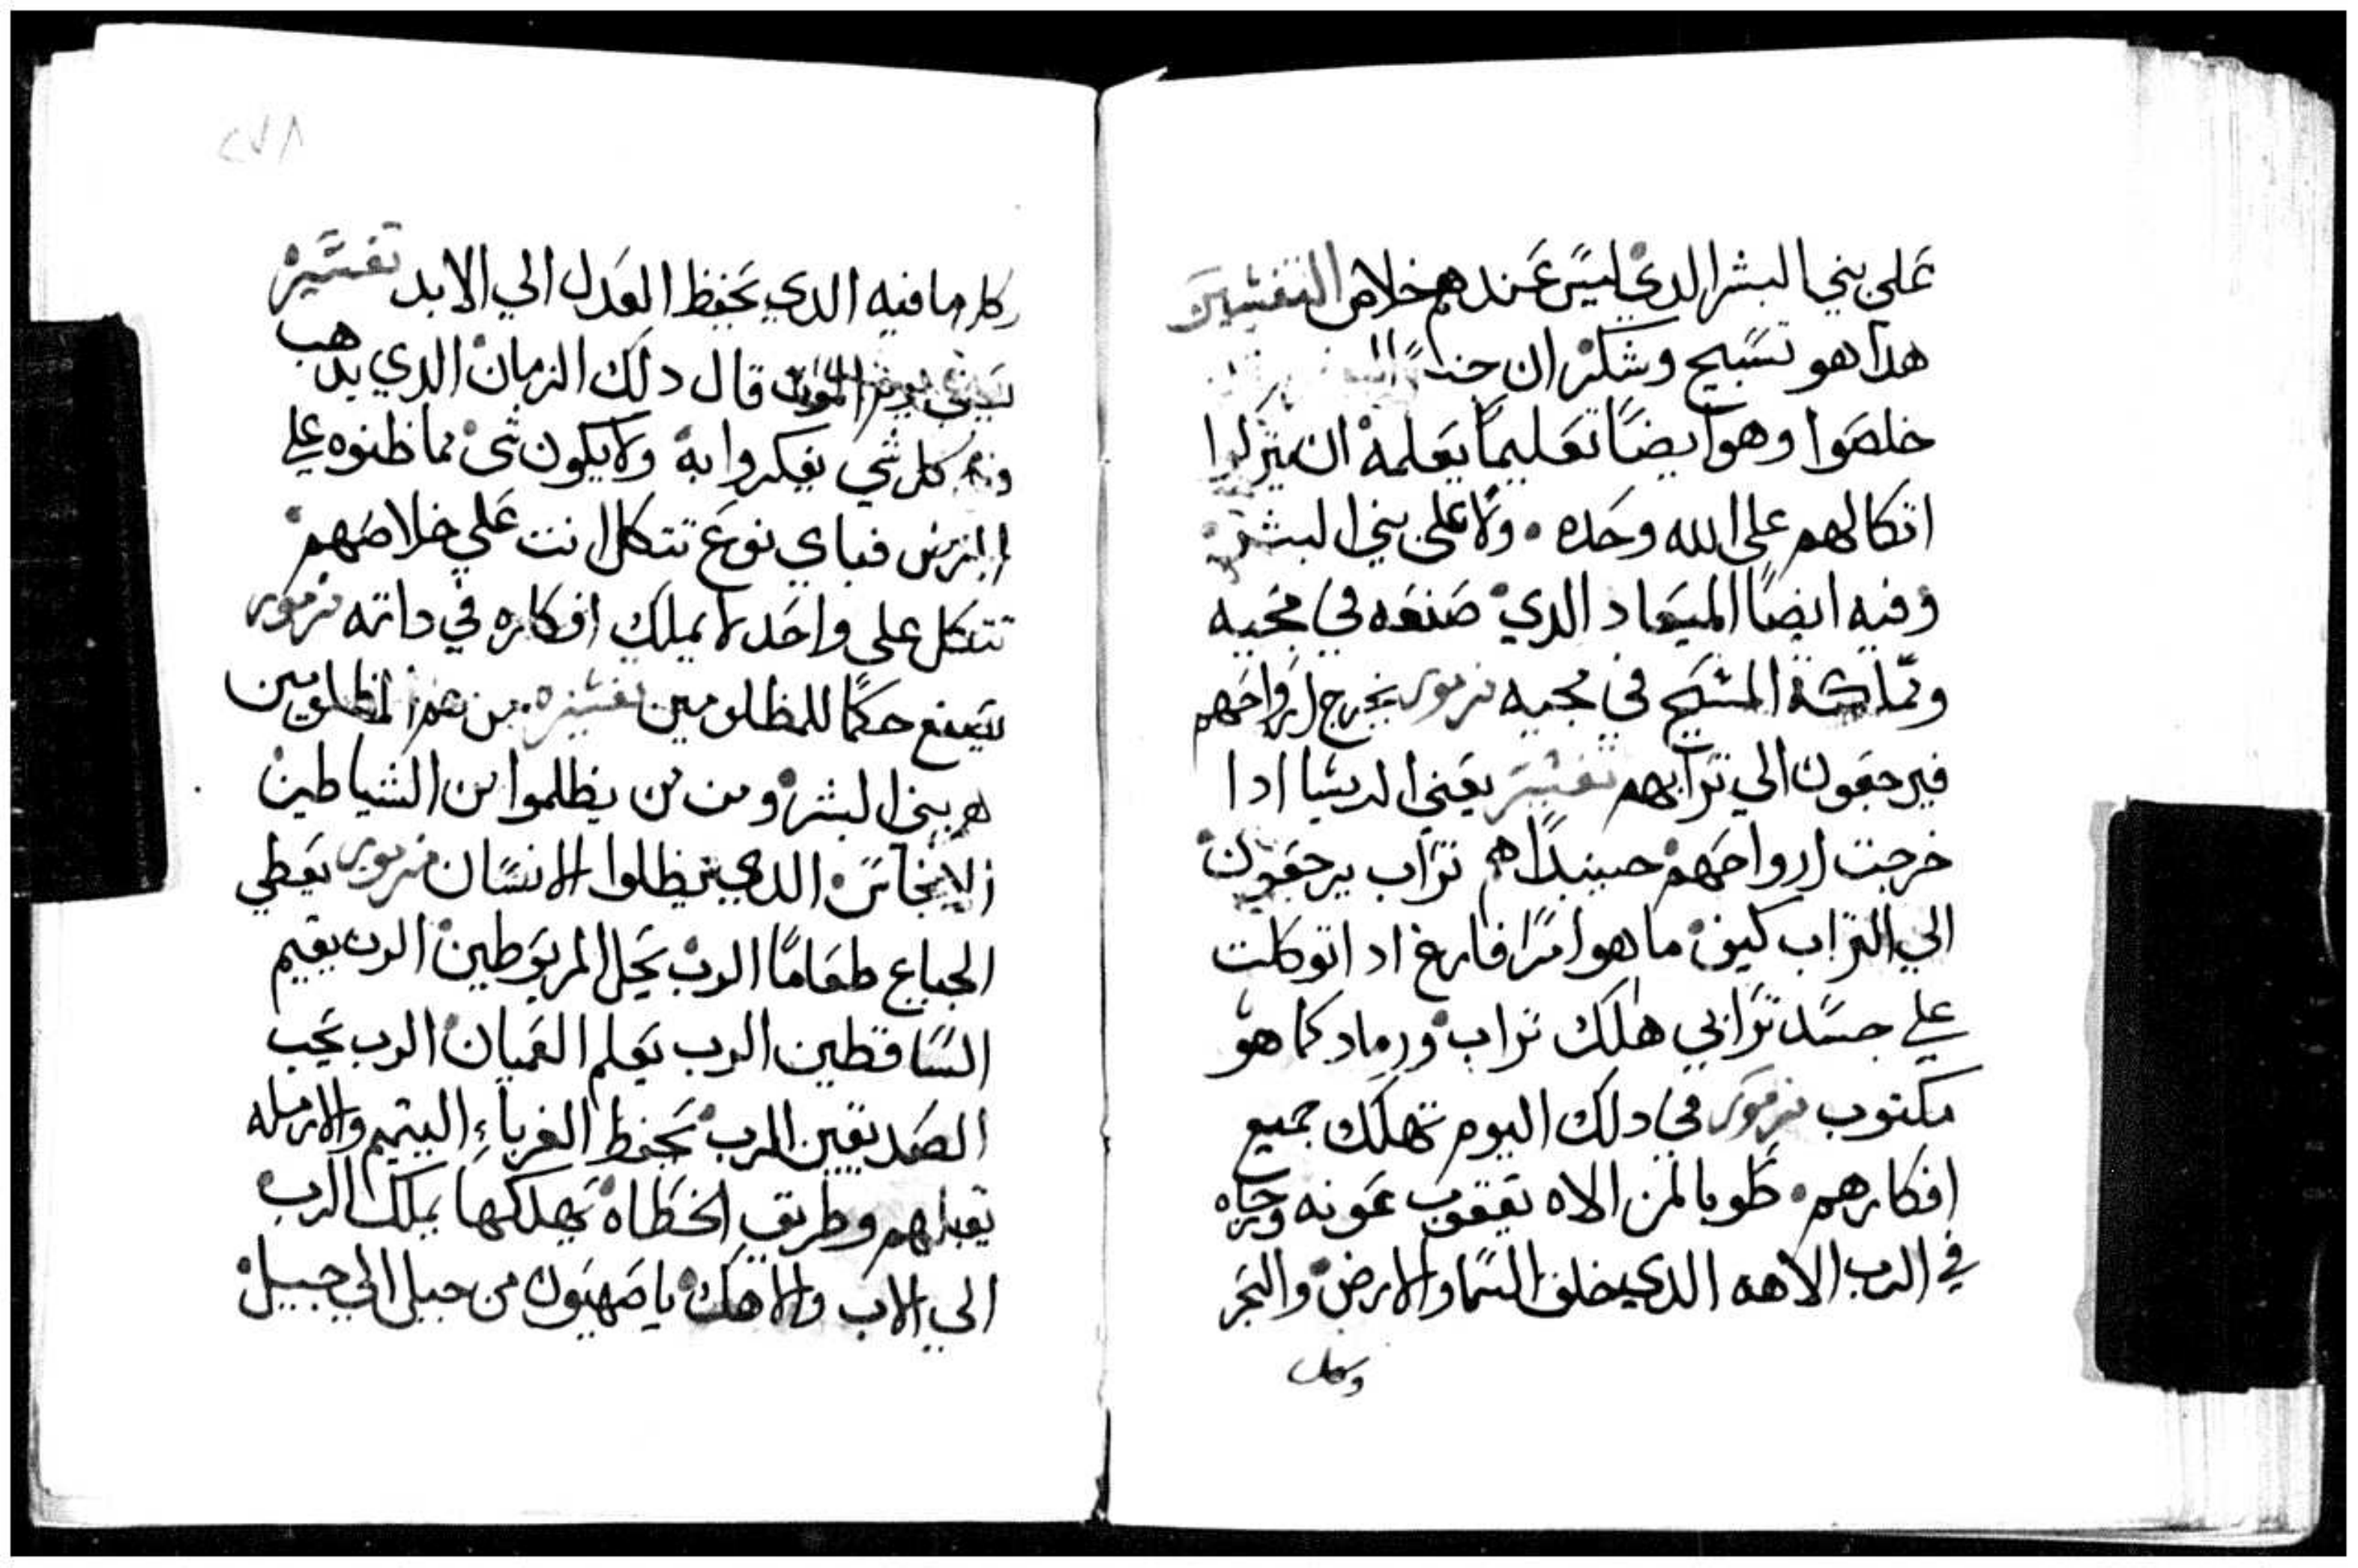 علي بني البشر الدي ليس عندهم خلاص التفسير
هدا هو تسبيح وشكر ان جند
خلصوا وهو ايضًا تعليمًا يعلمهْ ان يتركوا
اتكالهم علي الله وحده • ولا علي بني البشر
وفيه ايضًا الميعاد الدي صنعه في مجيه
المسيح في مجيه مزمور يخرج ارواحهم
فيرجعون الي ترابهم تفسير يعني ادا
خرجت ارواحهم حينيدًا هم تراب يرجعون
الي التراب كيف ما هو امرًا فارغ اد اتوكلت
علي جسد ترابي هلك تراب ورماد كما هو
مكتوب مزمور في دلك اليوم تهلك جميع
افكارهم • طوبا لمن الاه يعقوب عونه ورجاه
في الرب الاهه الدي خلق السما والارض والبحر
وكل
٢٧٨
وكل ما فيه الدي يحفظ العدل الي الابد تفسير
يعني يوم الموت قال دلك الزمان الدي يدهب
كل شي يفكروا به ولا يكون شي مما ظنوه علي
فباي نوع تتكل انت علي خلاصهم
تتكل علي واحد لا يملك افكاره في داته مزمور
يصنع حكمًا للمظلومين تفسيره • من هم المظلومين
هم بني البشر ومن من يظلموا من الشياطين
الانجاس الدي يظلموا الانسان مزمور يعطي
الجياع طعامًا الرب يحل المربوطين الرب يقيم
الساقطين الرب يعلم العميان الرب يحب
الصديقين الرب يحفظ الغرباء اليتيم والارمله
يقبلهم وطريق الخطاه يهلكها يملك الرب
الي الابد والاهك يا صهيون من جيل الي جيل